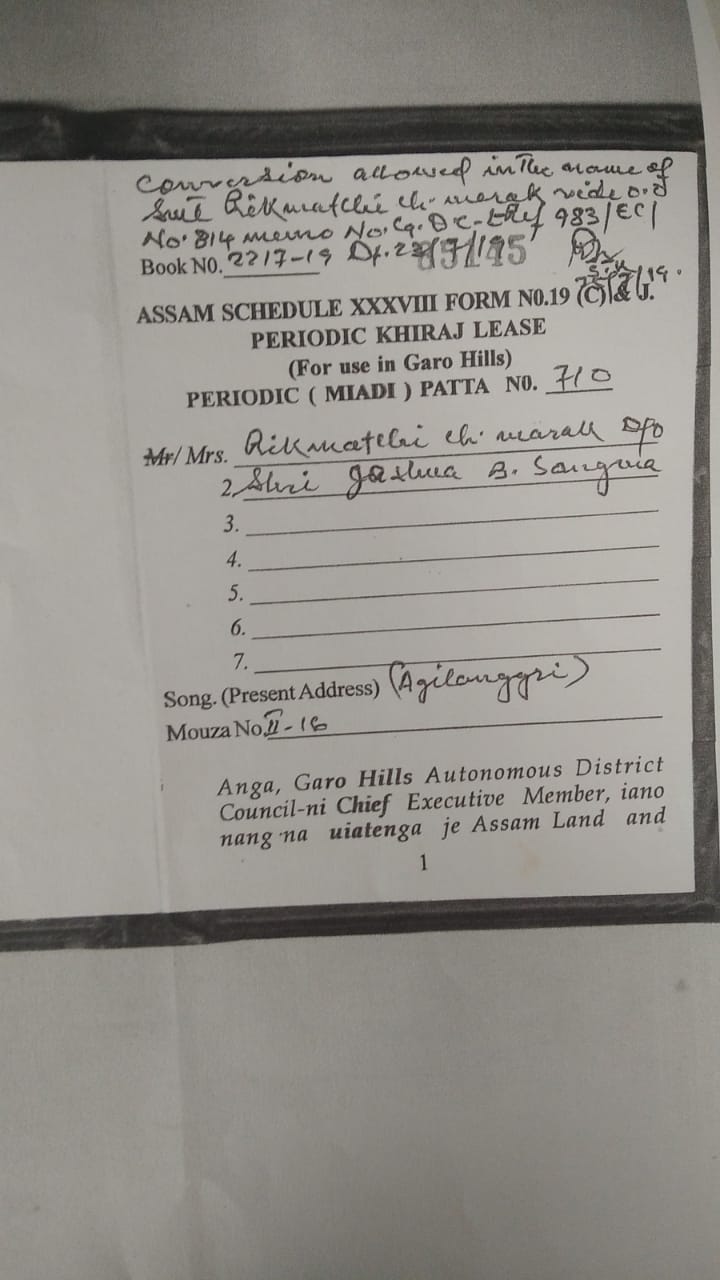 Conversion allowed in the name of
Smt Rikmatchi ch. marak vide ord
No. 814 memo No. 983/EC/
Book N0. 2217-19 Dt.
ASSAM SCHEDULE XXXVIII FORM N0.19 (C) & J.
PERIODIC KHIRAJ LEASE
(For use in Garo Hills)
PERIODIC ( MIADI ) PATTA N0. 710
Mr/ Mrs. Rikmatchi ch. marak D/o
2. Shri Jashua B. Sangma
3.
4.
5.
6.
7.
Song. (Present Address) (Agilanggri)
Mouza No. II-16
Anga, Garo Hills Autonomous District
Council-ni Chief Executive Member, iano
nang·na uiatenga je Assam Land and
1